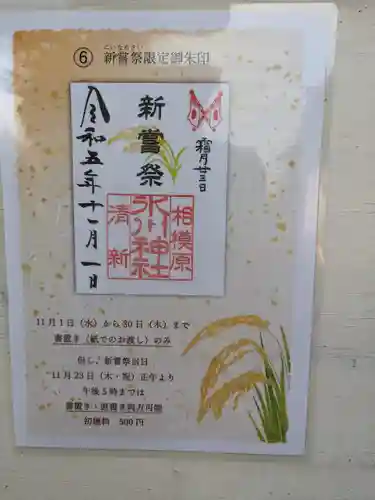 ⑥ 新嘗祭限定御朱印
にいなめさい
霜月廿三日
新嘗祭
令和五年十一月一日
相模原
氷川神社
清新
11月1日（水）から30日（木）まで
書置き（紙でのお渡し）のみ
但し、新嘗祭前日
11月23日（木・祝）正午より
午後5時までは
書置き・直書き両方可能
初穂料 500円